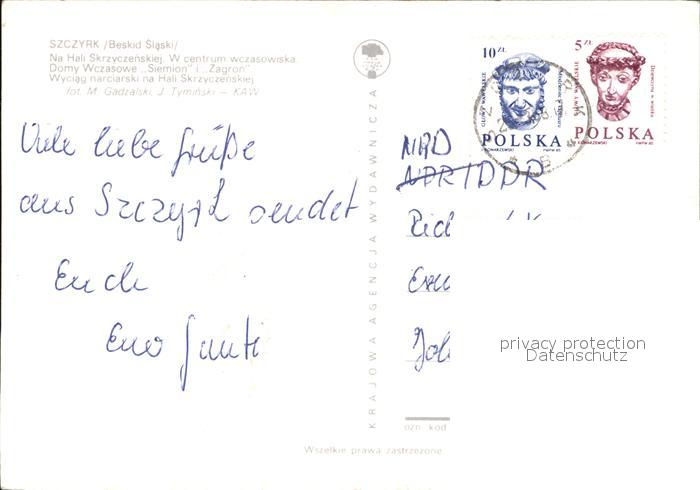 SZCZYRK /Beskid Śląski/
Na Hali Skrzyczeńskiej. W centrum wczasowiska
Domy Wczasowe „Siemion" i „Zagroń"
Wyciąg narciarski na Hali Skrzyczeńskiej
fot. M. Gadzalski, J. Tymiński — KAW
Viele liebe Grüße
aus Szczyrk sendet
Euch
KRAJOWA AGENCJA WYDAWNICZA
10 ZŁ
GŁOWY WAWELSKIE
POLSKA
5 ZŁ
GŁOWY WAWELSKIE
POLSKA
NRD
DDR
privacy protection
Datenschutz
ozn. kod
Wszelkie prawa zastrzeżone